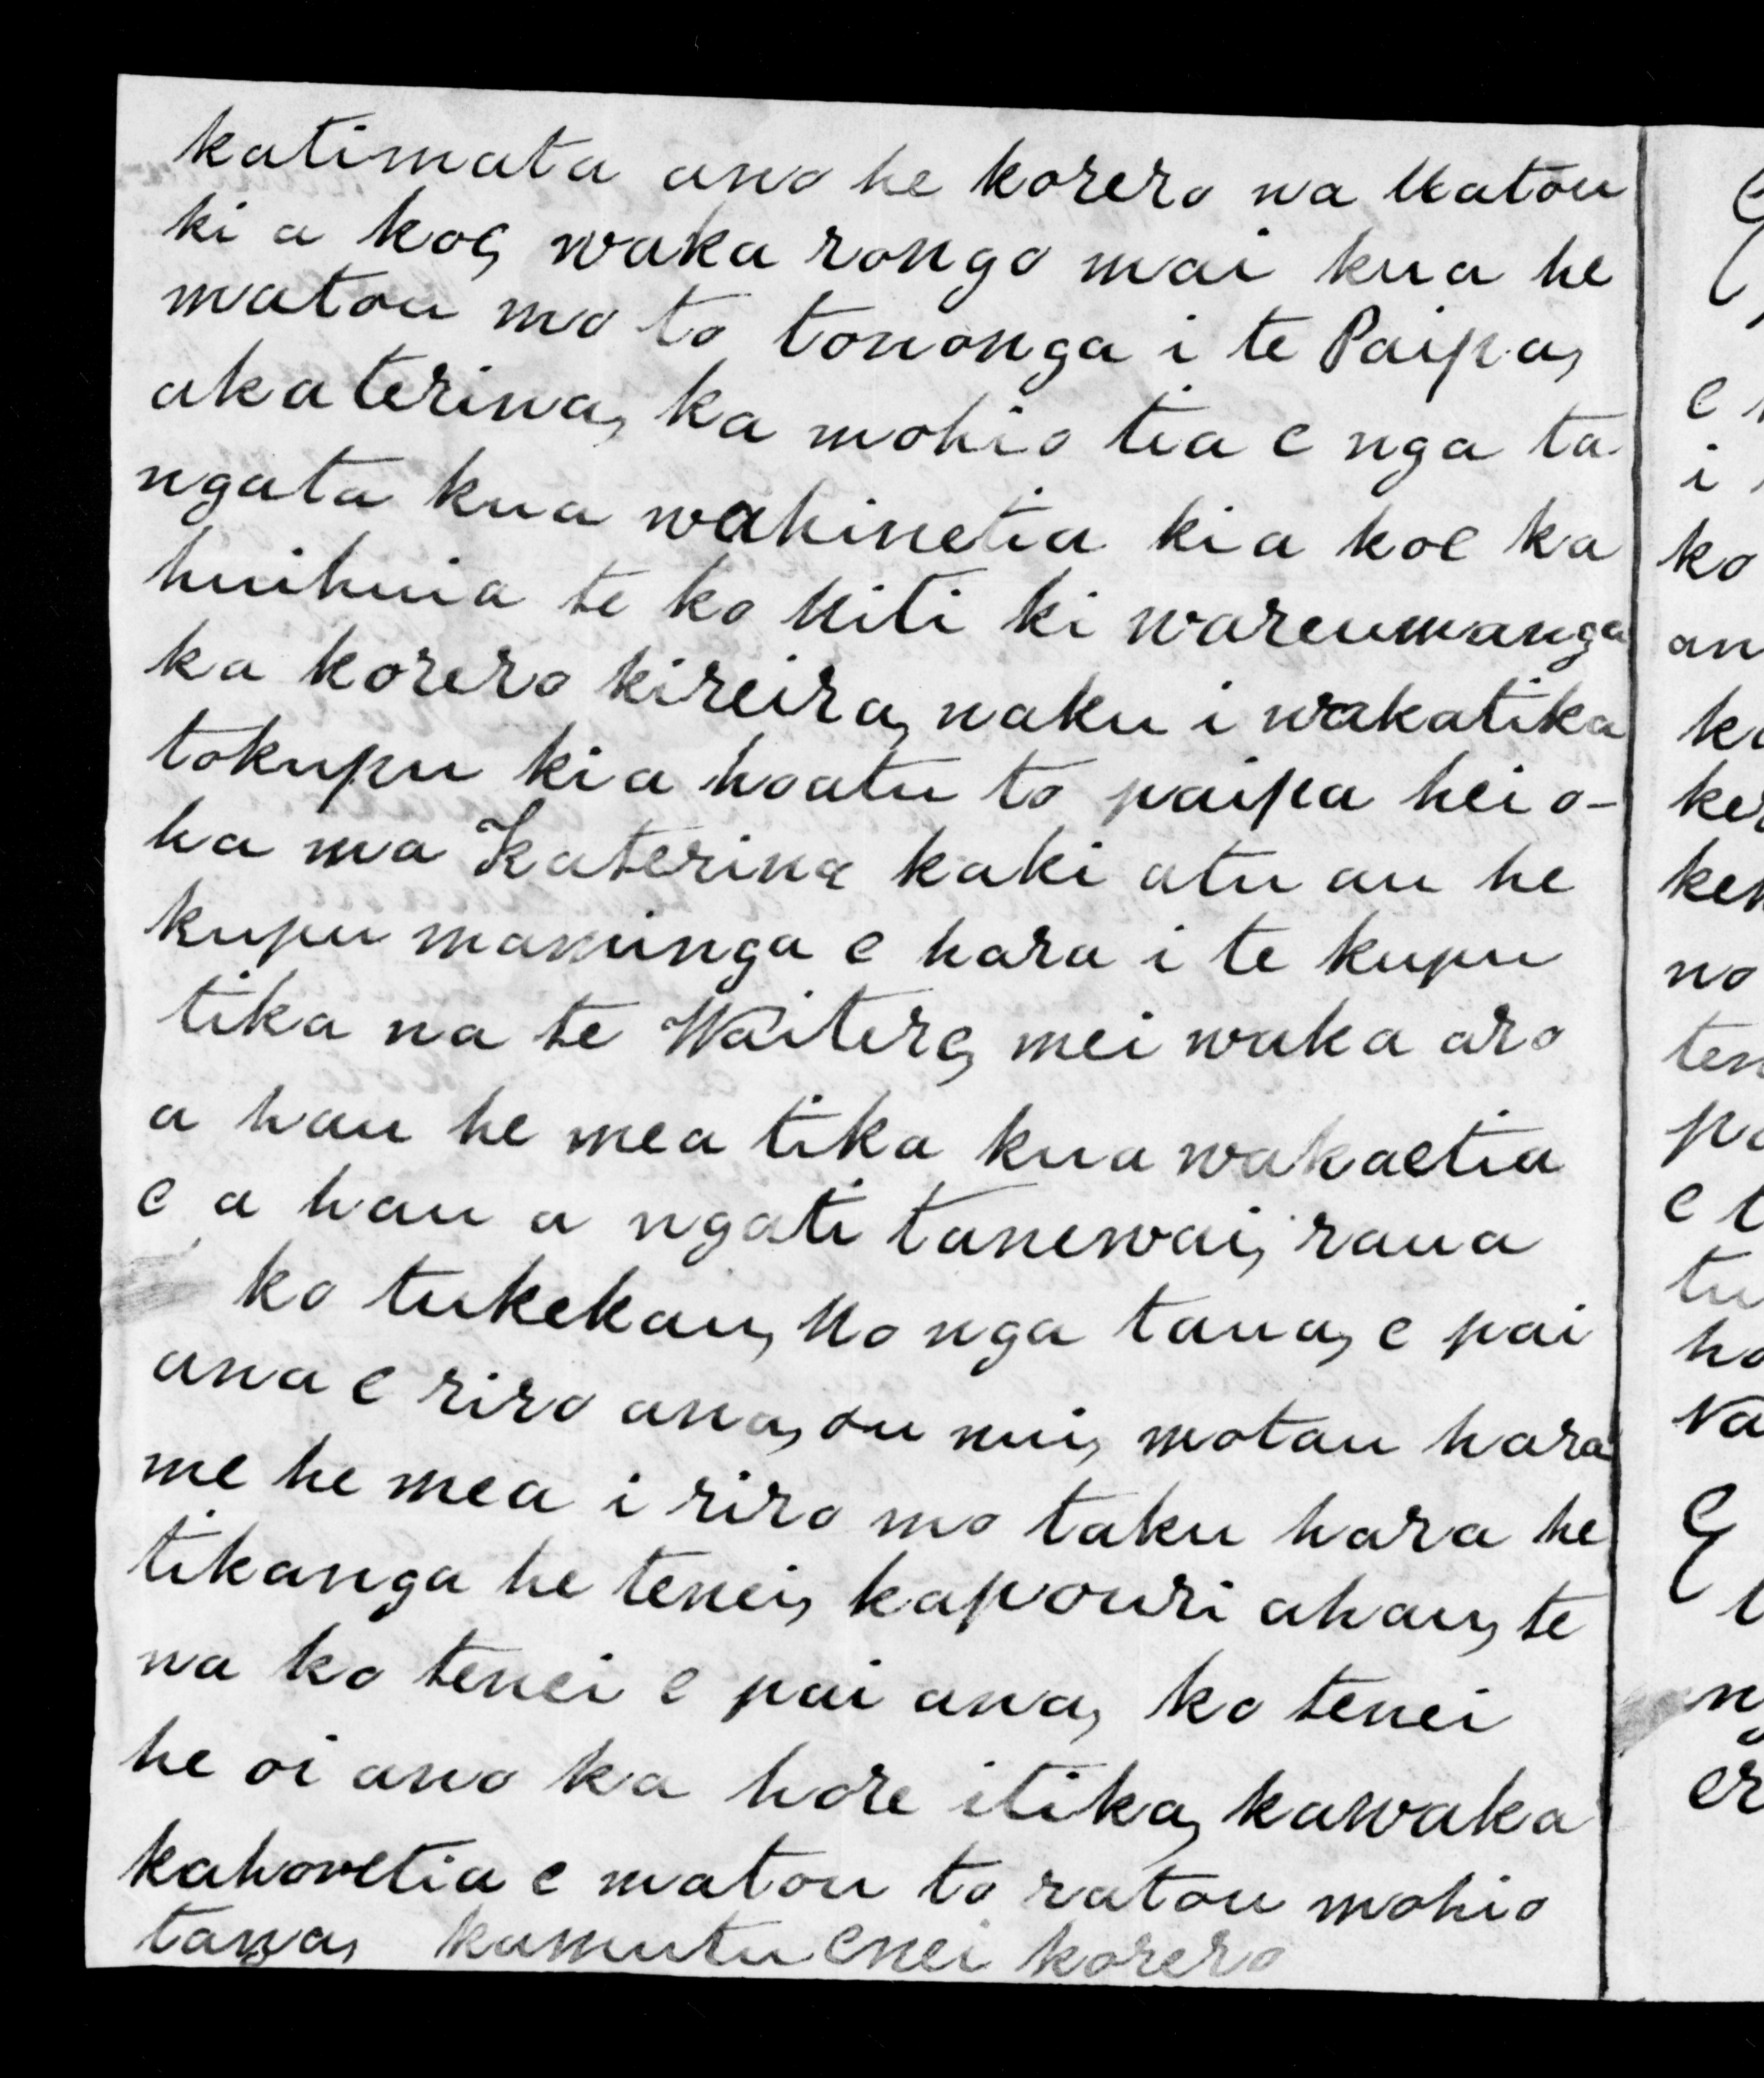 katimata ano he korero na Matou
ki a koe, waka rongo mai kua he
matou mo to tononga i te Paipa,
akaterina, ka mohio tia e nga ta
ngata kua wahinetia kia koe ka
huihuia te ko Miti ki wareumanga
ka korero kireira, naku i wakatika
tokupu kia hoatu to paipa hei o-
ha ma Katerina kaki atu au he
kupu maminga e hara i te kupu
tika na te Waitere, mei waka aro
a hau he mea tika kua wakaetia
e a hau a ngati tanewai, raua
ko tukekau, Mo nga taua, e pai
ana e riro ana, ou nui, motau hara
me he mea i riro mo taku hara he
tikanga he tenei, kapouri ahau, te
na ko tenei e pai ana, ko tenei
he oi ano ka hore itika, kawaka
kahoretia e matou to ratou mohio
tanga, kamutu enei korero
e
i
ko
an
ka
ker
ken
no
ten
pa
e
tu
ho
Na
E
n
er